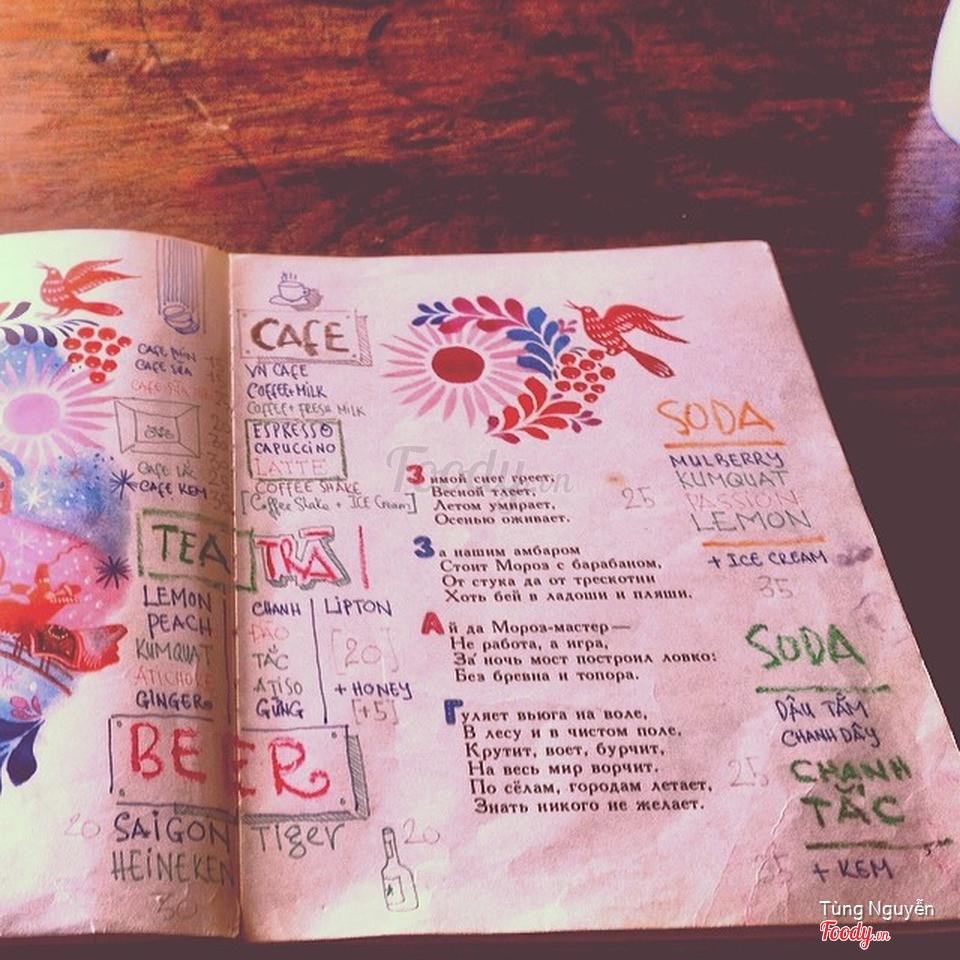 CAFE ĐEN
CAFE SỮA
CAFE SỮA
CAFE LẮC
CAFE KEM
TEA
LEMON
PEACH
KUMQUAT
ATICHOKE
GINGER
BEER
20 SAIGON
HEINEKEN
30
CAFE
VN CAFE
COFFEE+MILK
COFFEE+FRESH MILK
ESPRESSO
CAPUCCINO
LATTE
COFFEE SHAKE
[Coffee Shake + ICE Cream]
TRÀ
CHANH
ĐÀO
TẮC
ATISO
GỪNG
LIPTON
[20]
+ HONEY
[+5]
Tiger 20
Зимой снег греет,
Весной тлеет,
Летом умирает,
Осенью оживает.
За нашим амбаром
Стоит Мороз с барабаном,
От стука да от трескотни
Хоть бей в ладоши и пляши.
Ай да Мороз-мастер—
Не работа, а игра,
За ночь мост построил ловко:
Без бревна и топора.
Гуляет вьюга на воле,
В лесу и в чистом поле,
Крутит, воет, бурчит,
На весь мир ворчит.
По сёлам, городам летает,
Знать никого не желает.
SODA
MULBERRY
KUMQUAT
25 PASSION
LEMON
+ ICE CREAM
35
SODA
DÂU TẰM
CHANH DÂY
25 CHANH
TẮC
35 + KEM
Foody.vn
Tùng Nguyễn
Foody.vn